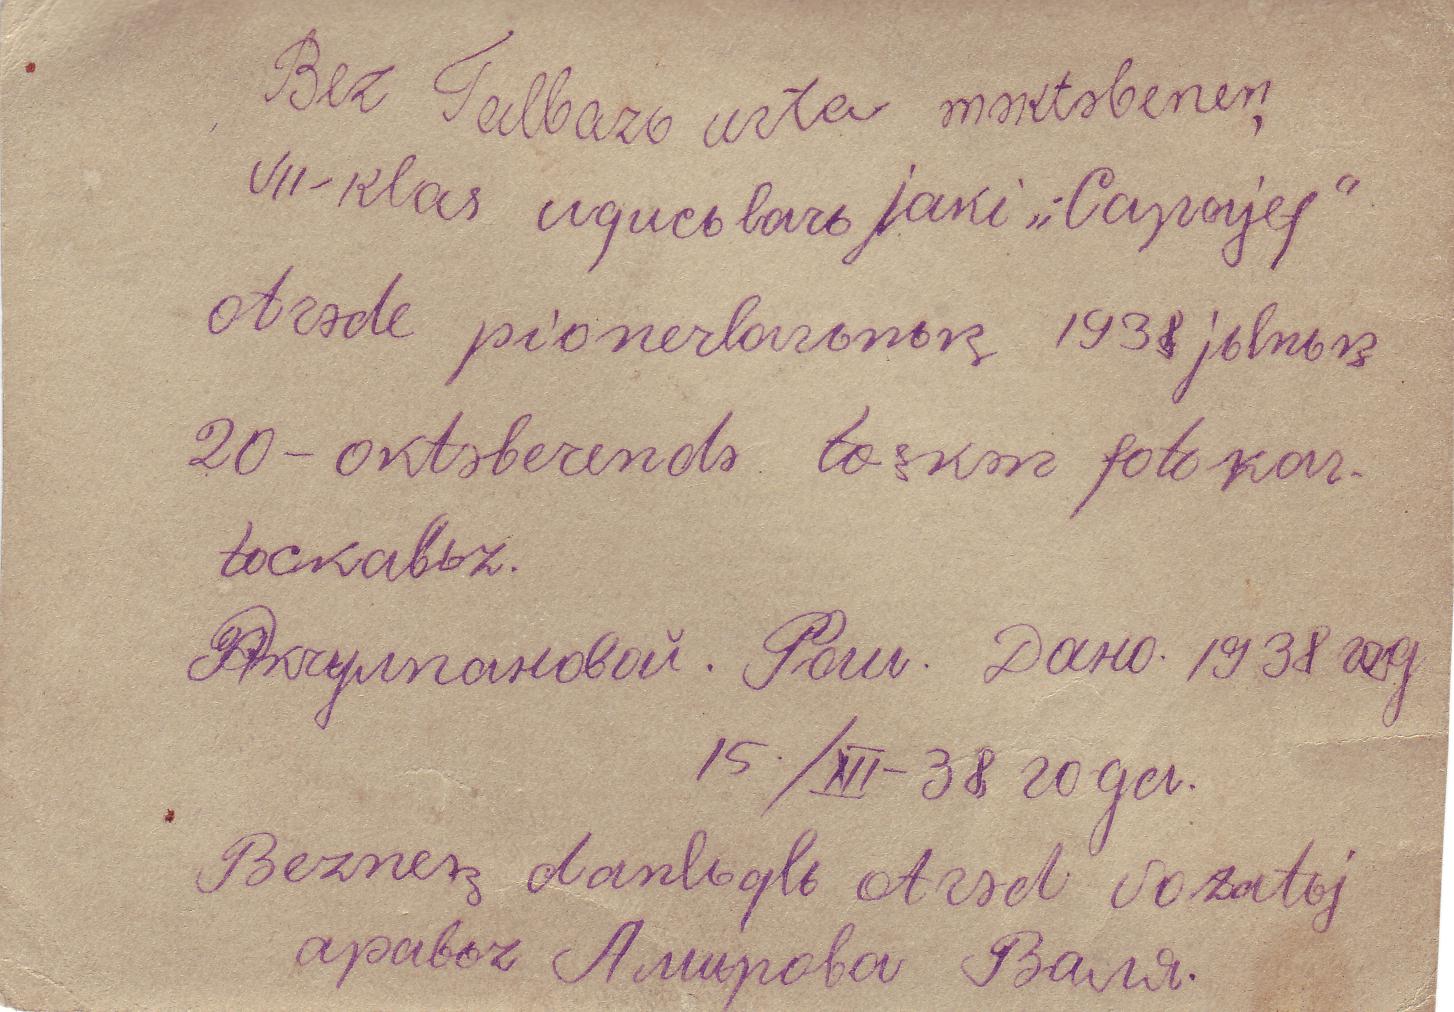 Bez Talbazь urta məktəbeneꞑ
VII-klas uqucьlarь jaki „Capajef“
otrəde pionerlarьnьꞑ 1938 jьlnьꞑ
20-oktəberendə tɵşkən fotokar-
tockabьz.
Акчулпановой. Дано. 1938 год
15./XII-38 года.
Bezneꞑ danlьqlь otrəd vozatьj
apabьz Амирова Валя.